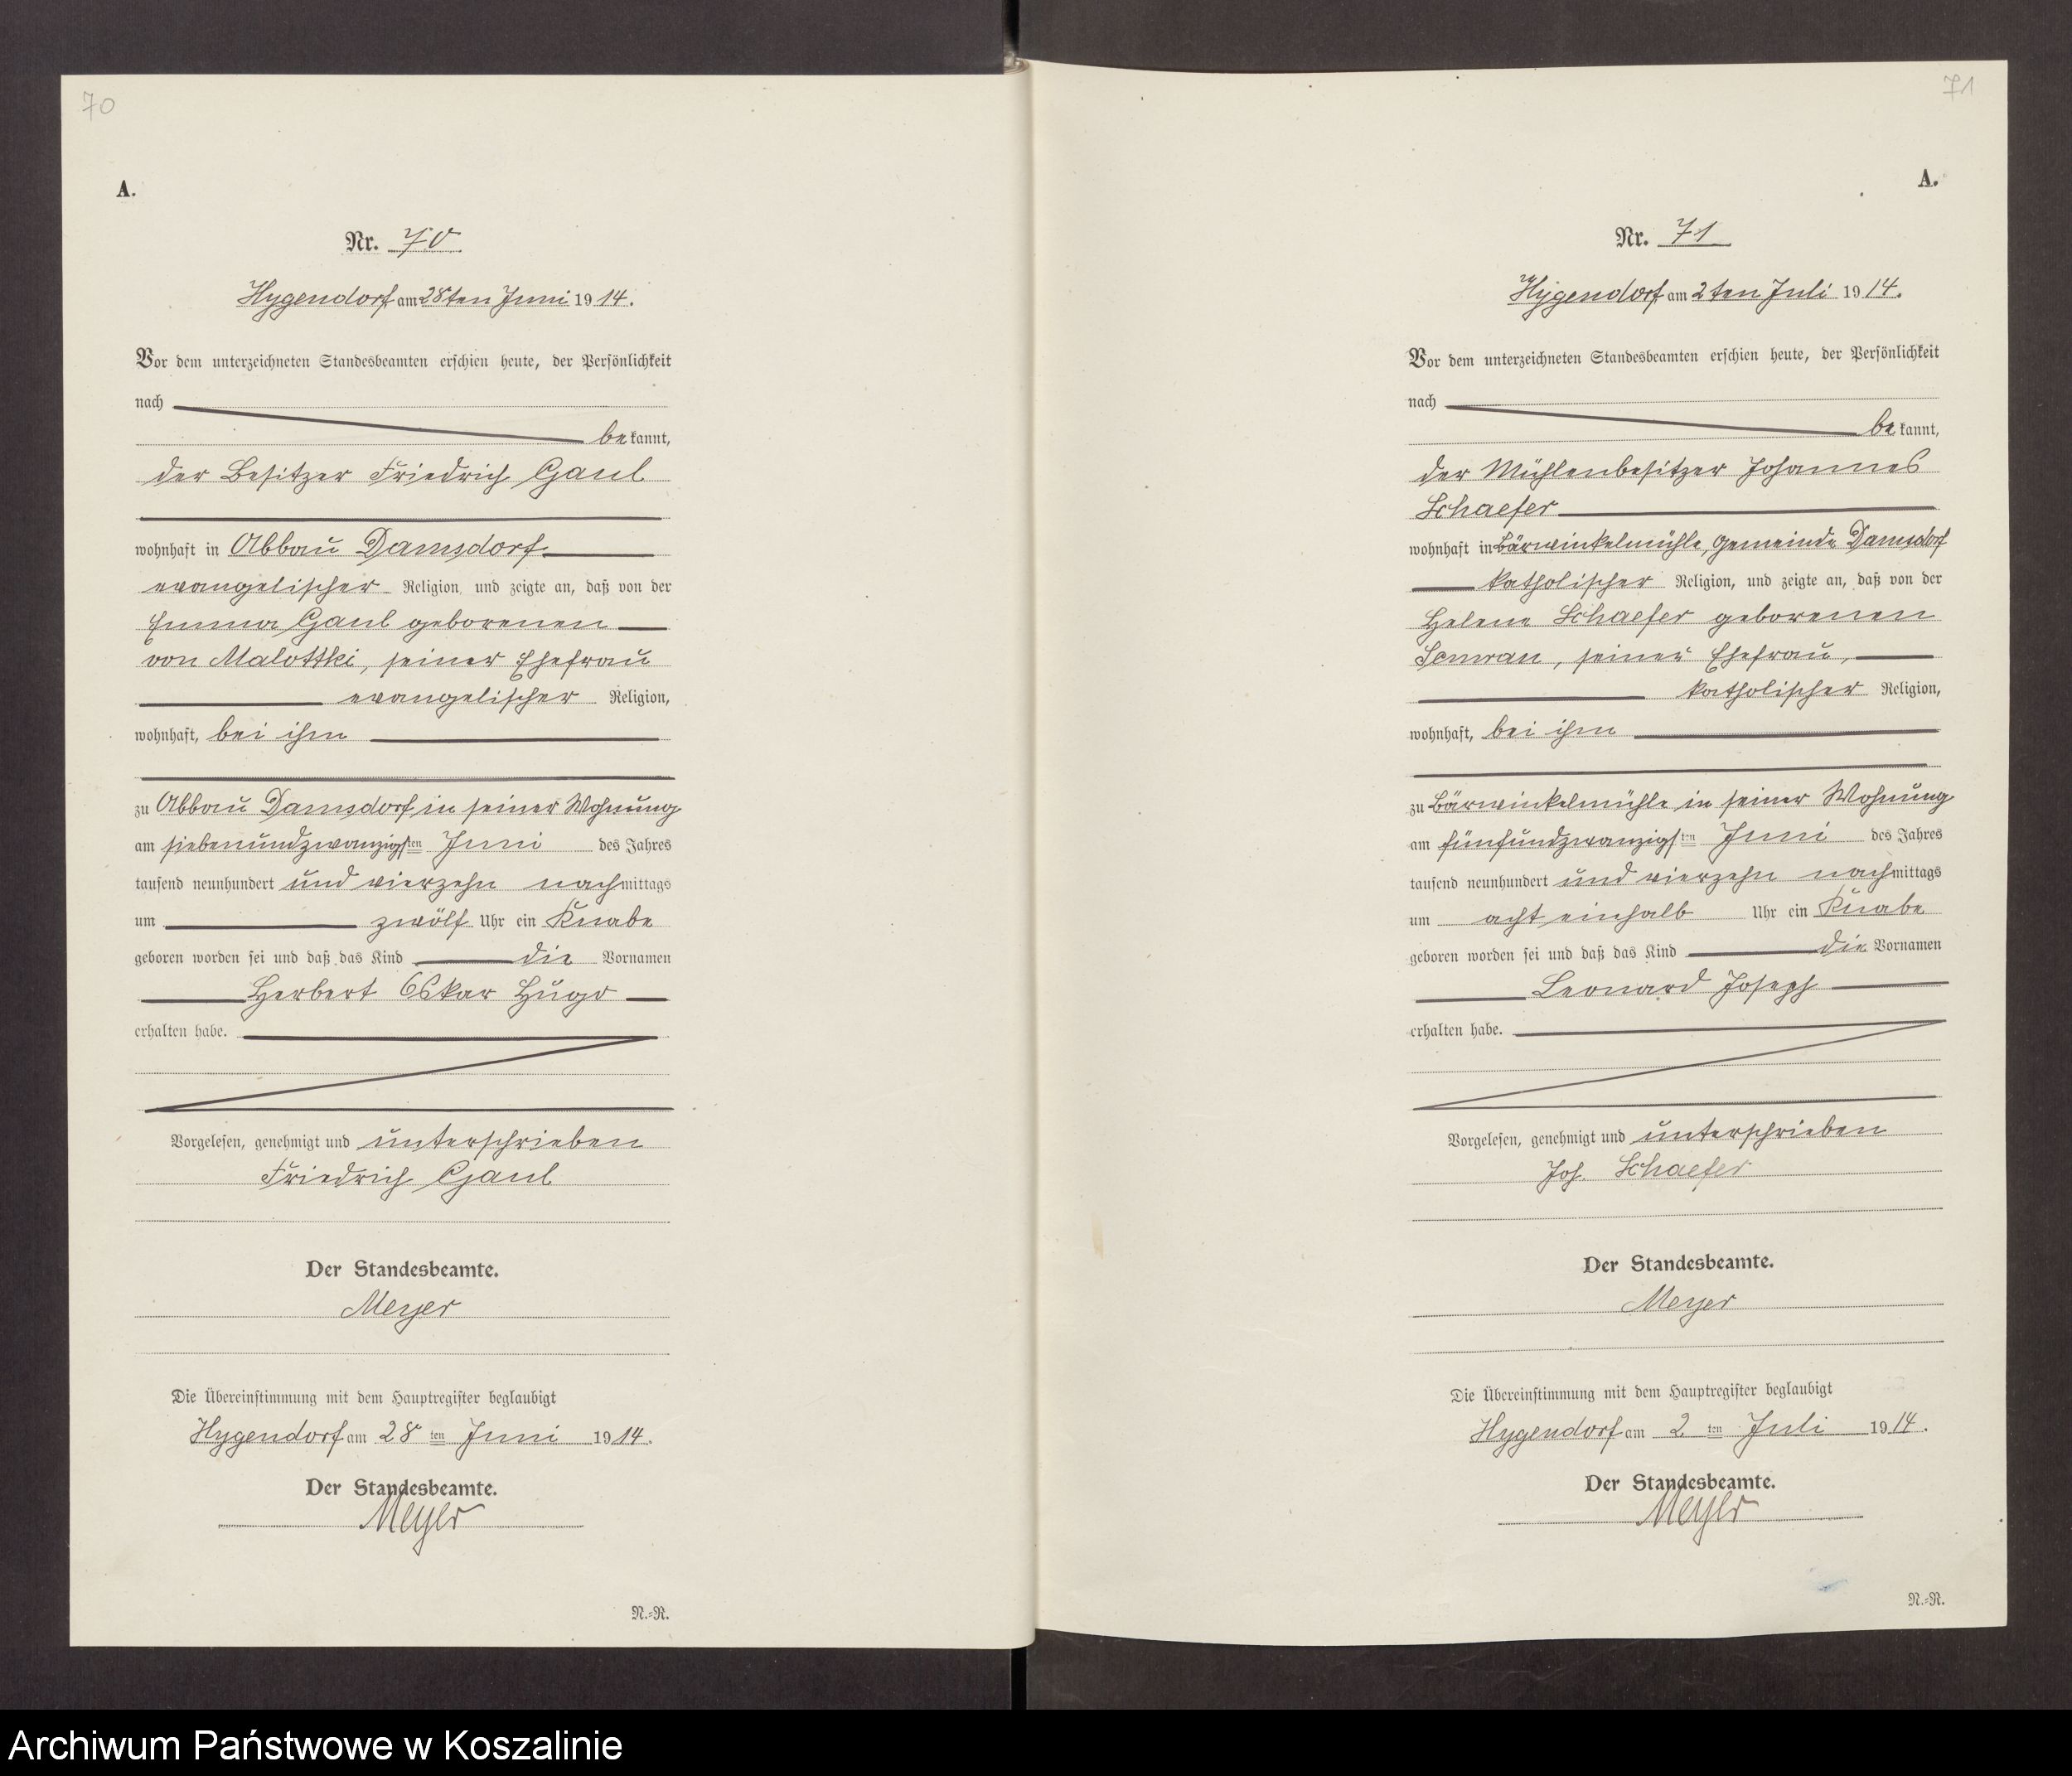 70
A.
Nr. 70
Hygendorf am 28ten Juni 1914.
Vor dem unterzeichneten Standesbeamten erschien heute, der Persönlichkeit
nach
bekannt,
der Besitzer Friedrich Gaul
wohnhaft in Abbau Damsdorf
evangelischer Religion, und zeigte an, daß von der
Emma Gaul geborenen
von Malottki, seiner Ehefrau
evangelischer Religion,
wohnhaft, bei ihm
zu Abbau Damsdorf in seiner Wohnung
am siebenundzwanzigsten Juni des Jahres
tausend neunhundert und vierzehn nachmittags
um zwölf Uhr ein Knabe
geboren worden sei und daß das Kind die Vornamen
Herbert Oskar Hugo
erhalten habe.
Vorgelesen, genehmigt und unterschrieben
Friedrich Gaul
Der Standesbeamte.
Meyer
Die Übereinstimmung mit dem Hauptregister beglaubigt
Hygendorf am 28ten Juni 1914.
Der Standesbeamte.
Meyer
N.-R.
71
A.
Nr. 71
Hygendorf am 2ten Juli 1914.
Vor dem unterzeichneten Standesbeamten erschien heute, der Persönlichkeit
nach
bekannt,
der Mühlenbesitzer Johannes
Schaefer
wohnhaft in Bärwinkelmühle, Gemeinde Damsdorf
katholischer Religion, und zeigte an, daß von der
Helene Schaefer geborenen
seiner Ehefrau,
katholischer Religion,
wohnhaft, bei ihm
zu Bärwinkelmühle in seiner Wohnung
am fünfundzwanzigsten Juni des Jahres
tausend neunhundert und vierzehn nachmittags
um acht einhalb Uhr ein Knabe
geboren worden sei und daß das Kind die Vornamen
Leonard Joseph
erhalten habe.
Vorgelesen, genehmigt und unterschrieben
Joh. Schaefer
Der Standesbeamte.
Meyer
Die Übereinstimmung mit dem Hauptregister beglaubigt
Hygendorf am 2ten Juli 1914.
Der Standesbeamte.
Meyer
N.-R.
Archiwum Państwowe w Koszalinie